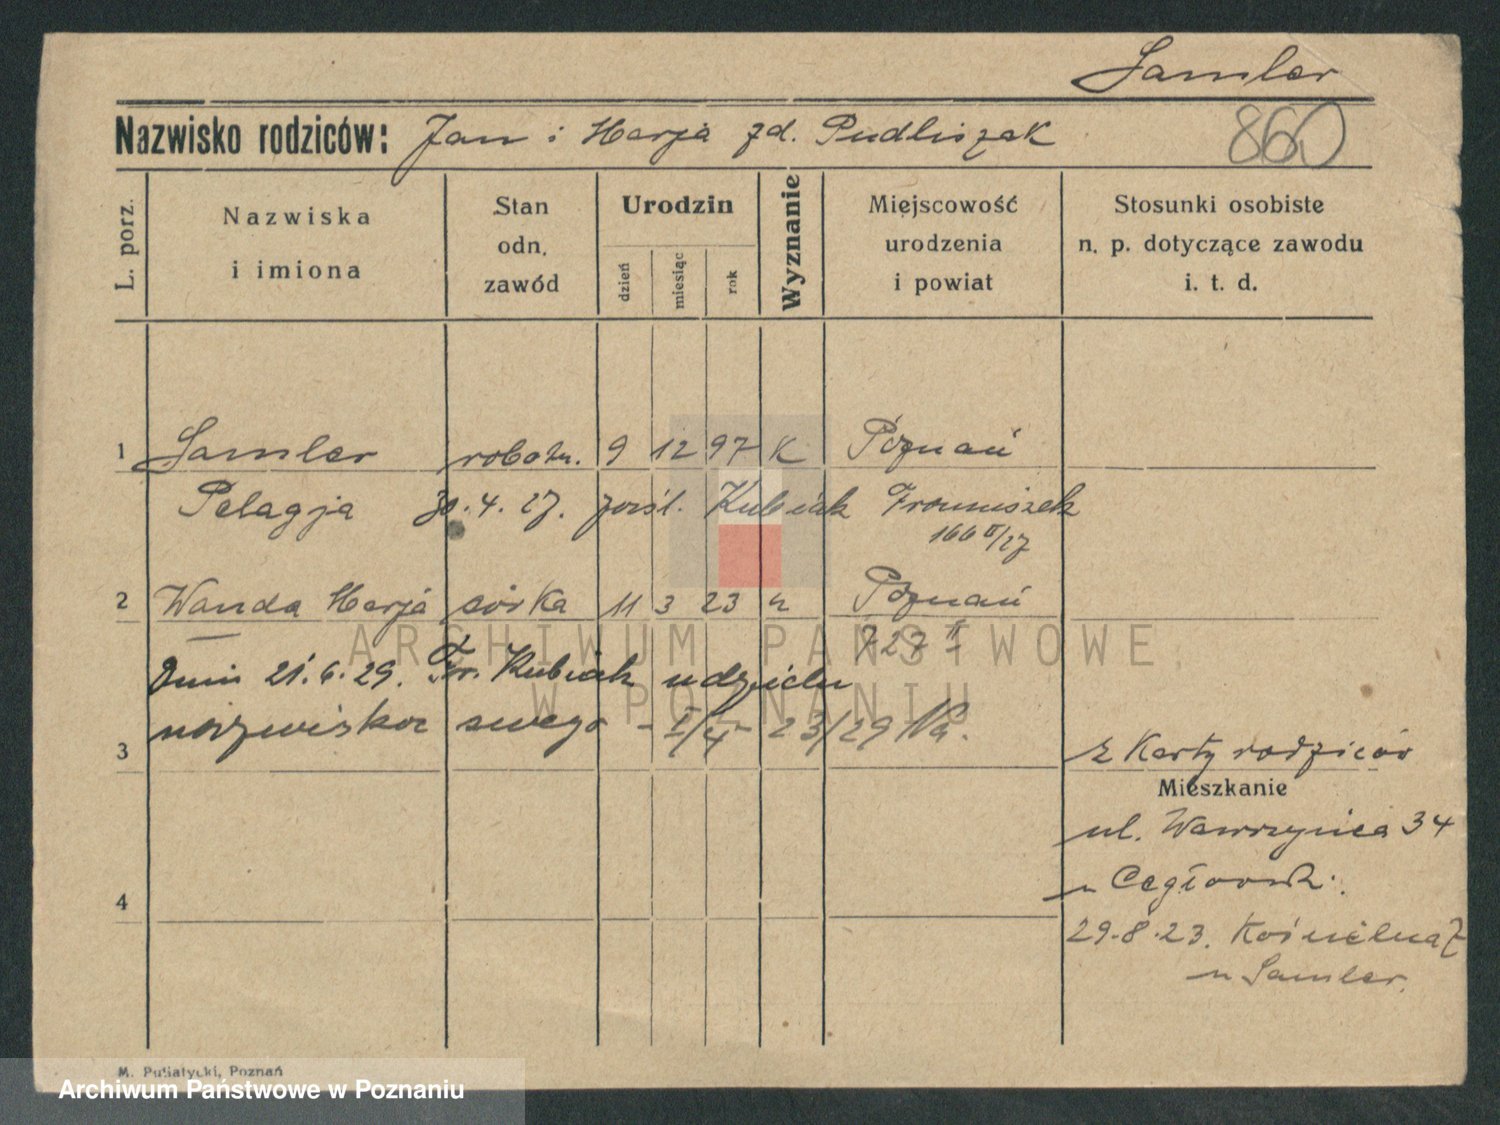 Samler
Nazwisko rodziców: Jan i Marja zd. Pudliszak
860
L. porz.
Nazwiska
i imiona
Stan
odn.
zawód
Urodzin
dzień
miesiąc
rok
Wyznanie
Miejscowość
urodzenia
i powiat
Stosunki osobiste
n. p. dotyczące zawodu
i. t. d.
1 Samler robotn. 9 12 97 K Poznań
Pelagja 30.4.27. zaśl. Kubiak Franciszek
166 II/27
2 Wanda Marja córka 11 3 23 " Poznań
727 II
Dnia 21.6.29. Fr. Kubiak udzielił
nazwiska swego - I/4 - 23/29
3
z Karty rodziców
Mieszkanie
ul. Wawrzyńca 34
4
29.8.23. Kościelna 7
u Samler.
M. Pusiatycki, Poznań
ARCHIWUM PAŃSTWOWE
W POZNANIU
Archiwum Państwowe w Poznaniu